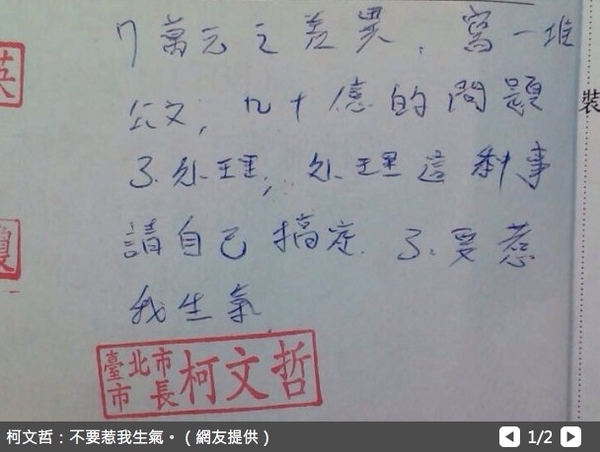 7萬元之差異，寫一堆
公文，幾十億的問題
不處理，處理這剩事
請自己搞定．不要惹
我生氣．
臺北市市長柯文哲
裝
柯文哲：不要惹我生氣。（網友提供）
1/2